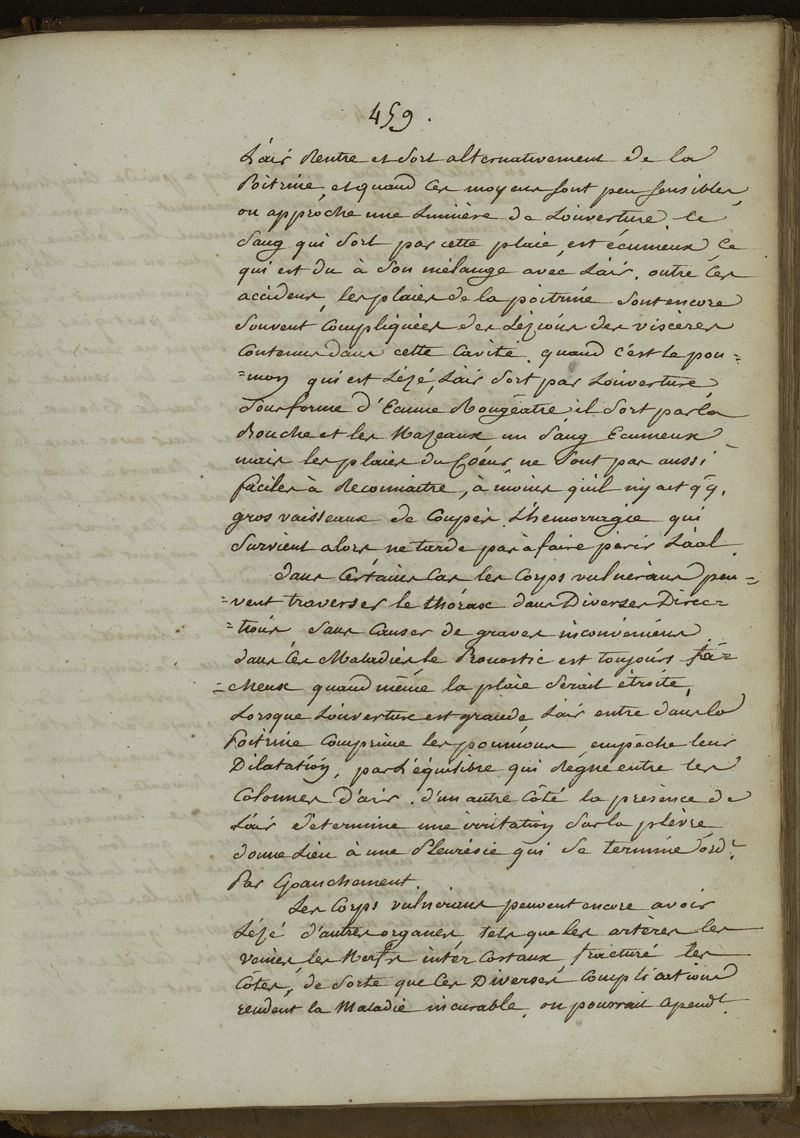 459.
L'air Rentre et Sort alternativement de la
Poitrine, et quand ces moyens sont peu sensibles
on approche une Lumière de L'ouverture. le
Sang qui Sort par cette plaie, est écumeux, Ce
qui est du à Son mélange avec L'air. outre Ces
accidens, les plaies de la poitrine Sont encore
Souvent Compliquées des Lézions des viscères
Contenus dans cette Cavité. quand c'est le pou=
=mon qui est Lézé, L'air Sort par L'ouverture
Sous forme d'Ecume Rougeatre il Sort par la
Bouche et les Nazeaux un Sang Ecumeux
mais les plaies du Coeur ne Sont pas aussi
faciles à Reconnaitre, à moins qu'il n'y ait q.q.
gros vaisseaux de Coupés. L'hemorragie qui
Survient alors ne tarde pas à faire périr L'aal.
dans Certains Cas les Corps vulnérans peu=
=vent traverser le thorax dans Diverses Direc=
=tions Sans Causer de graves inconveniens
dans Ces Maladies, le Pronostic est toujours fâ=
=cheux quand même la plaie Serait étroite,
Lorsque L'ouverture est grande L'air entre dans la
Poitrine Comprime les poumons, empêche leur
Dilatation, par L'équilibre qui Règne entre les
Colonnes D'air. d'un autre Côté la présence de
L'air determine une irritation Sur la plèvre
donne Lieu à une Pleurésie qui Se termine Ordt
Par Epanchement.
Les Corps vulnérans peuvent encore avoir
Lézé d'autres organes tels que les artères les
veines, les Nerfs intér Costaux, fracturé les
Côtes, de Sorte que Ces Diverses Complications
rendent la Maladie incurable. on pourrait Cepend.t